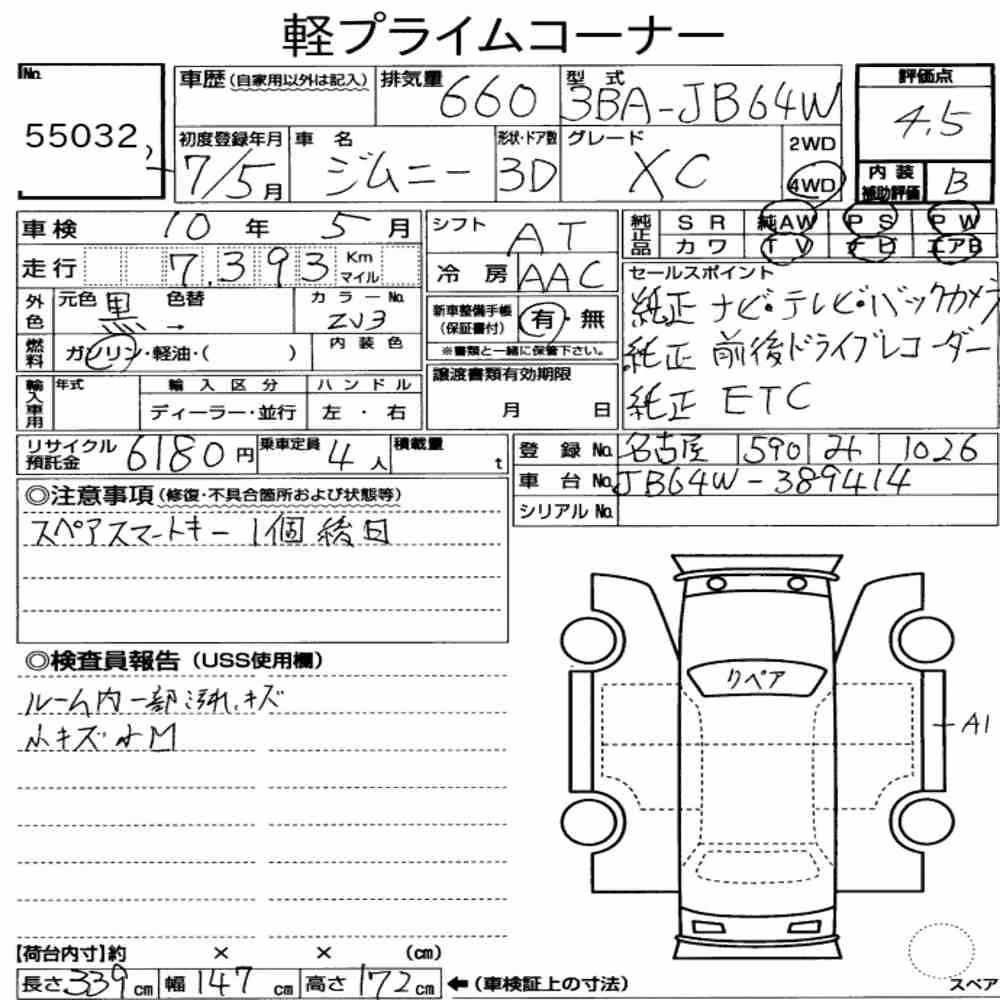 軽プライムコーナー
No.
55032
車歴(自家用以外は記入) 排気量 660 型式 3BA-JB64W
評価点
4.5
初度登録年月 7/5月 車名 ジムニー 形状・ドア数 3D グレード XC 2WD 4WD
内装補助評価 B
車検 10年 5月
シフト AT
純正品 SR 純AW PS PW
カワ TV ナビ エアB
走行 7,393 Km マイル
冷房 AAC
セールスポイント
純正 ナビ・テレビ・バックカメラ
純正 前後ドライブレコーダー
純正 ETC
外色 元色 黒 → 色替 カラーNo. ZJ3
新車整備手帳(保証書付) 有・無
※書類と一緒に保管下さい。
燃料 ガソリン・軽油・( ) 内装色
譲渡書類有効期限
月 日
輸入車用 年式 輸入区分 ハンドル
ディーラー・並行 左・右
リサイクル預託金 6180円 乗車定員 4人 積載量 t
登録No. 名古屋 590 1026
車台No. JB64W-389414
シリアルNo.
◎注意事項(修復・不具合箇所および状態等)
スペアスマートキー 1個 後日
◎検査員報告(USS使用欄)
ルーム内一部汚れ、キズ
小キズ小M
リペア
A1
【荷台内寸】約 × × (cm)
長さ 339cm 幅 147cm 高さ 172cm ←(車検証上の寸法)
スペア